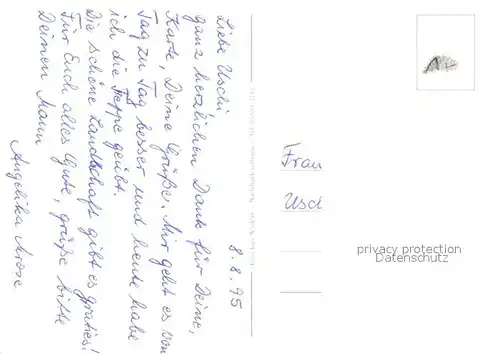 8. 8. 95
Liebe Uschi
ganz herzlichen Dank für Deine,
Karte, Deine Grüße. Mir geht es von
Tag zu Tag besser und heute habe
ich die Treppe geübt.
Die schöne Landschaft gibt es gratis!
Für Euch alles Gute, grüße bitte
Deinen Mann
Angelika
Frau
Usch
privacy protection
Datenschutz